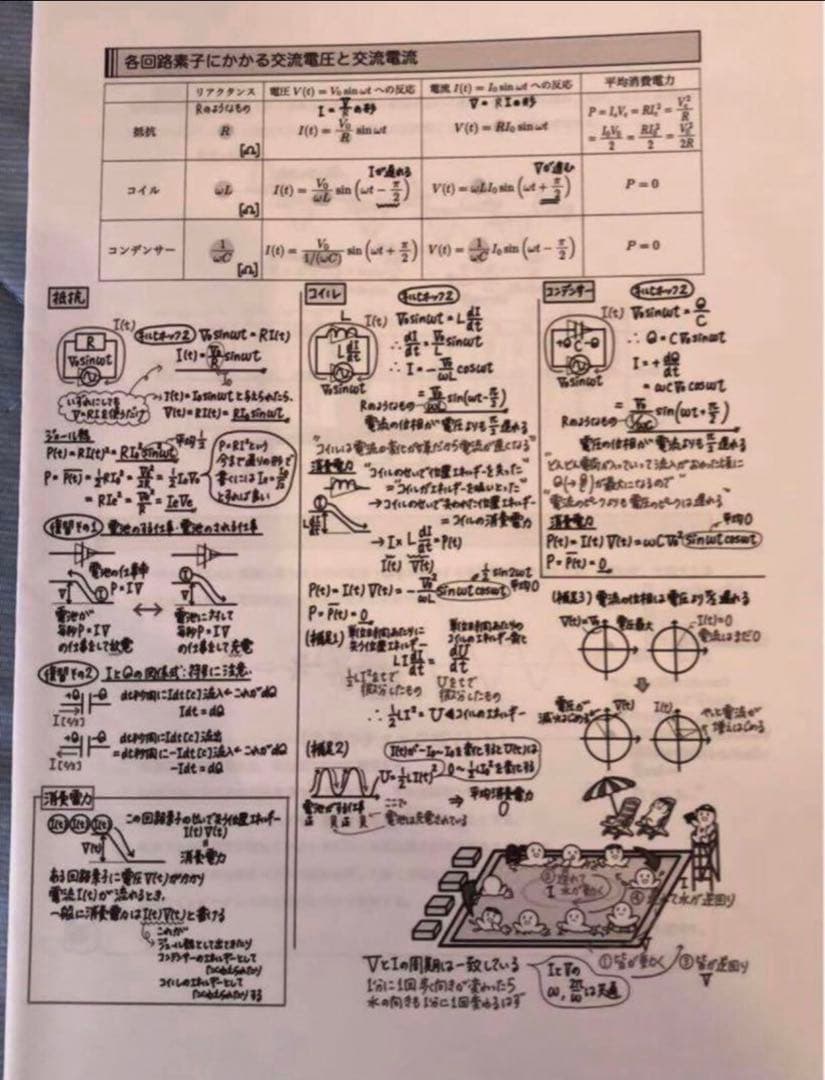 各回路素子にかかる交流電圧と交流電流
リアクタンス 電圧 V(t) = V₀ sin ωt への反応 電流 I(t) = I₀ sin ωt への反応 平均消費電力
Rのようなもの I = V/R の形 V = RI の形
抵抗 R [Ω] I(t) = V₀/R sin ωt V(t) = RI₀ sin ωt P = IₑVₑ = RIₑ² = Vₑ²/R
= I₀V₀/2 = RI₀²/2 = V₀²/2R
Iが遅れる Vが進む
コイル ωL [Ω] I(t) = V₀/ωL sin (ωt − π/2) V(t) = ωLI₀ sin (ωt + π/2) P = 0
コンデンサー 1/ωC [Ω] I(t) = V₀/1/(ωC) sin (ωt + π/2) V(t) = 1/ωC I₀ sin (ωt − π/2) P = 0
抵抗
I(t)
R
V₀sinωt
キルヒホッフ2 V₀sinωt = RI(t)
I(t) = V₀/R sinωt
I₀
いずれにしても
V=RIを使うだけ
I(t)=I₀sinωtと与えられたら、
V(t)=RI(t)=RI₀sinωt
ジュール熱
P(t)=RI(t)²=RI₀²sin²ωt 平均1/2
P = P(t) = 1/2 RI₀² = V₀²/2R = 1/2 I₀V₀
= RIe² = Ve²/R = IeVe
P=RI²という
今まで通りの形で
書くにはIe=I₀/√2
とすれば良い
復習その1 電池のする仕事・電池のされる仕事
電池の仕事率
P=IV
V
電池が
毎秒P=IV
の仕事をして放電
電池に対して
毎秒P=IV
の仕事をして充電
復習その2 IとQの関係式:符号に注意
+Q −Q
I[C/s]
dt秒間にIdt[C]流入 ← これがdQ
Idt=dQ
+Q −Q
I[C/s]
dt秒間にIdt[C]流出
=dt秒間に−Idt[C]流入 ← これがdQ
−Idt=dQ
消費電力
I(t) I(t) I(t)
V(t)
この回路素子のせいで失う位置エネルギー
I(t)V(t)
=
消費電力
ある回路素子に電圧V(t)がかかり
電流I(t)が流れるとき、
一般に消費電力はI(t)V(t)と書ける
これが
ジュール熱として出てきたり
コンデンサーのエネルギーとして
たくわえられたり
コイルのエネルギーとして
たくわえられたりする
コイル
L
I(t)
L dI/dt
V₀sinωt
キルヒホッフ2
V₀sinωt = L dI/dt
∴ dI/dt = V₀/L sinωt
∴ I = − V₀/ωL cosωt
= V₀/ωL sin(ωt−π/2)
Rのようなもの
電流の位相が電圧よりもπ/2遅れる
"コイルは電流の変化が苦手だから電流が遅くなる"
消費電力
"コイルのせいで位置エネルギーを失った"
="コイルがエネルギーを吸いとった"
→コイルのせいで失われた位置エネルギー
=コイルの消費電力
L dI/dt
→ I × L dI/dt = P(t)
I(t) V(t)
P(t)=I(t)V(t)=− V₀²/ωL sinωt cosωt
1/2 sin2ωt
平均0
P = P(t) = 0
(補足1)
単位時間あたりに
失う位置エネルギー
単位時間あたりの
コイルのエネルギー変化
LI dI/dt = dU/dt
1/2 LI²をtで
微分したもの
Uをtで
微分したもの
∴ 1/2 LI² = U ← コイルのエネルギー
(補足2)
I(t)が−I₀~I₀を変化するとU(t)は
0~1/2 LI₀²を変化する
U=1/2 LI(t)²
電池がする仕事
正 負 正 負
ここで
電池は充電されている
⇒ 平均消費電力
0
コンデンサー
キルヒホッフ2
I(t)
+Q C −Q
V₀sinωt
V₀sinωt = Q/C
∴ Q = CV₀sinωt
I = + dQ/dt
= ωCV₀cosωt
= V₀/1/ωC sin(ωt+π/2)
Rのようなもの
電圧の位相が電流よりもπ/2遅れる
Q(→V)が最大になるので"
"電流のピークよりも電圧のピークは遅れる"
消費電力
平均0
P(t)=I(t)V(t)=ωCV₀²sinωt cosωt
P = P(t) = 0
(補足3) 電流の位相は電圧よりπ/2遅れる
V(t)=V₀ 電圧最大
I(t)=0
電流はまだ0
電圧が
減りはじめる
V(t)
I(t)
やっと電流が
増えはじめる
② 遅れて
I 水が動く
I
④ 遅れて水が逆回り
① 皆が動く
V
③ 皆が逆回り
V
VとIの周期は一致している
1分に1回歩く向きが変わったら
水の向きも1分に1回変わるはず
IとVの
ω, 2π/ωは共通